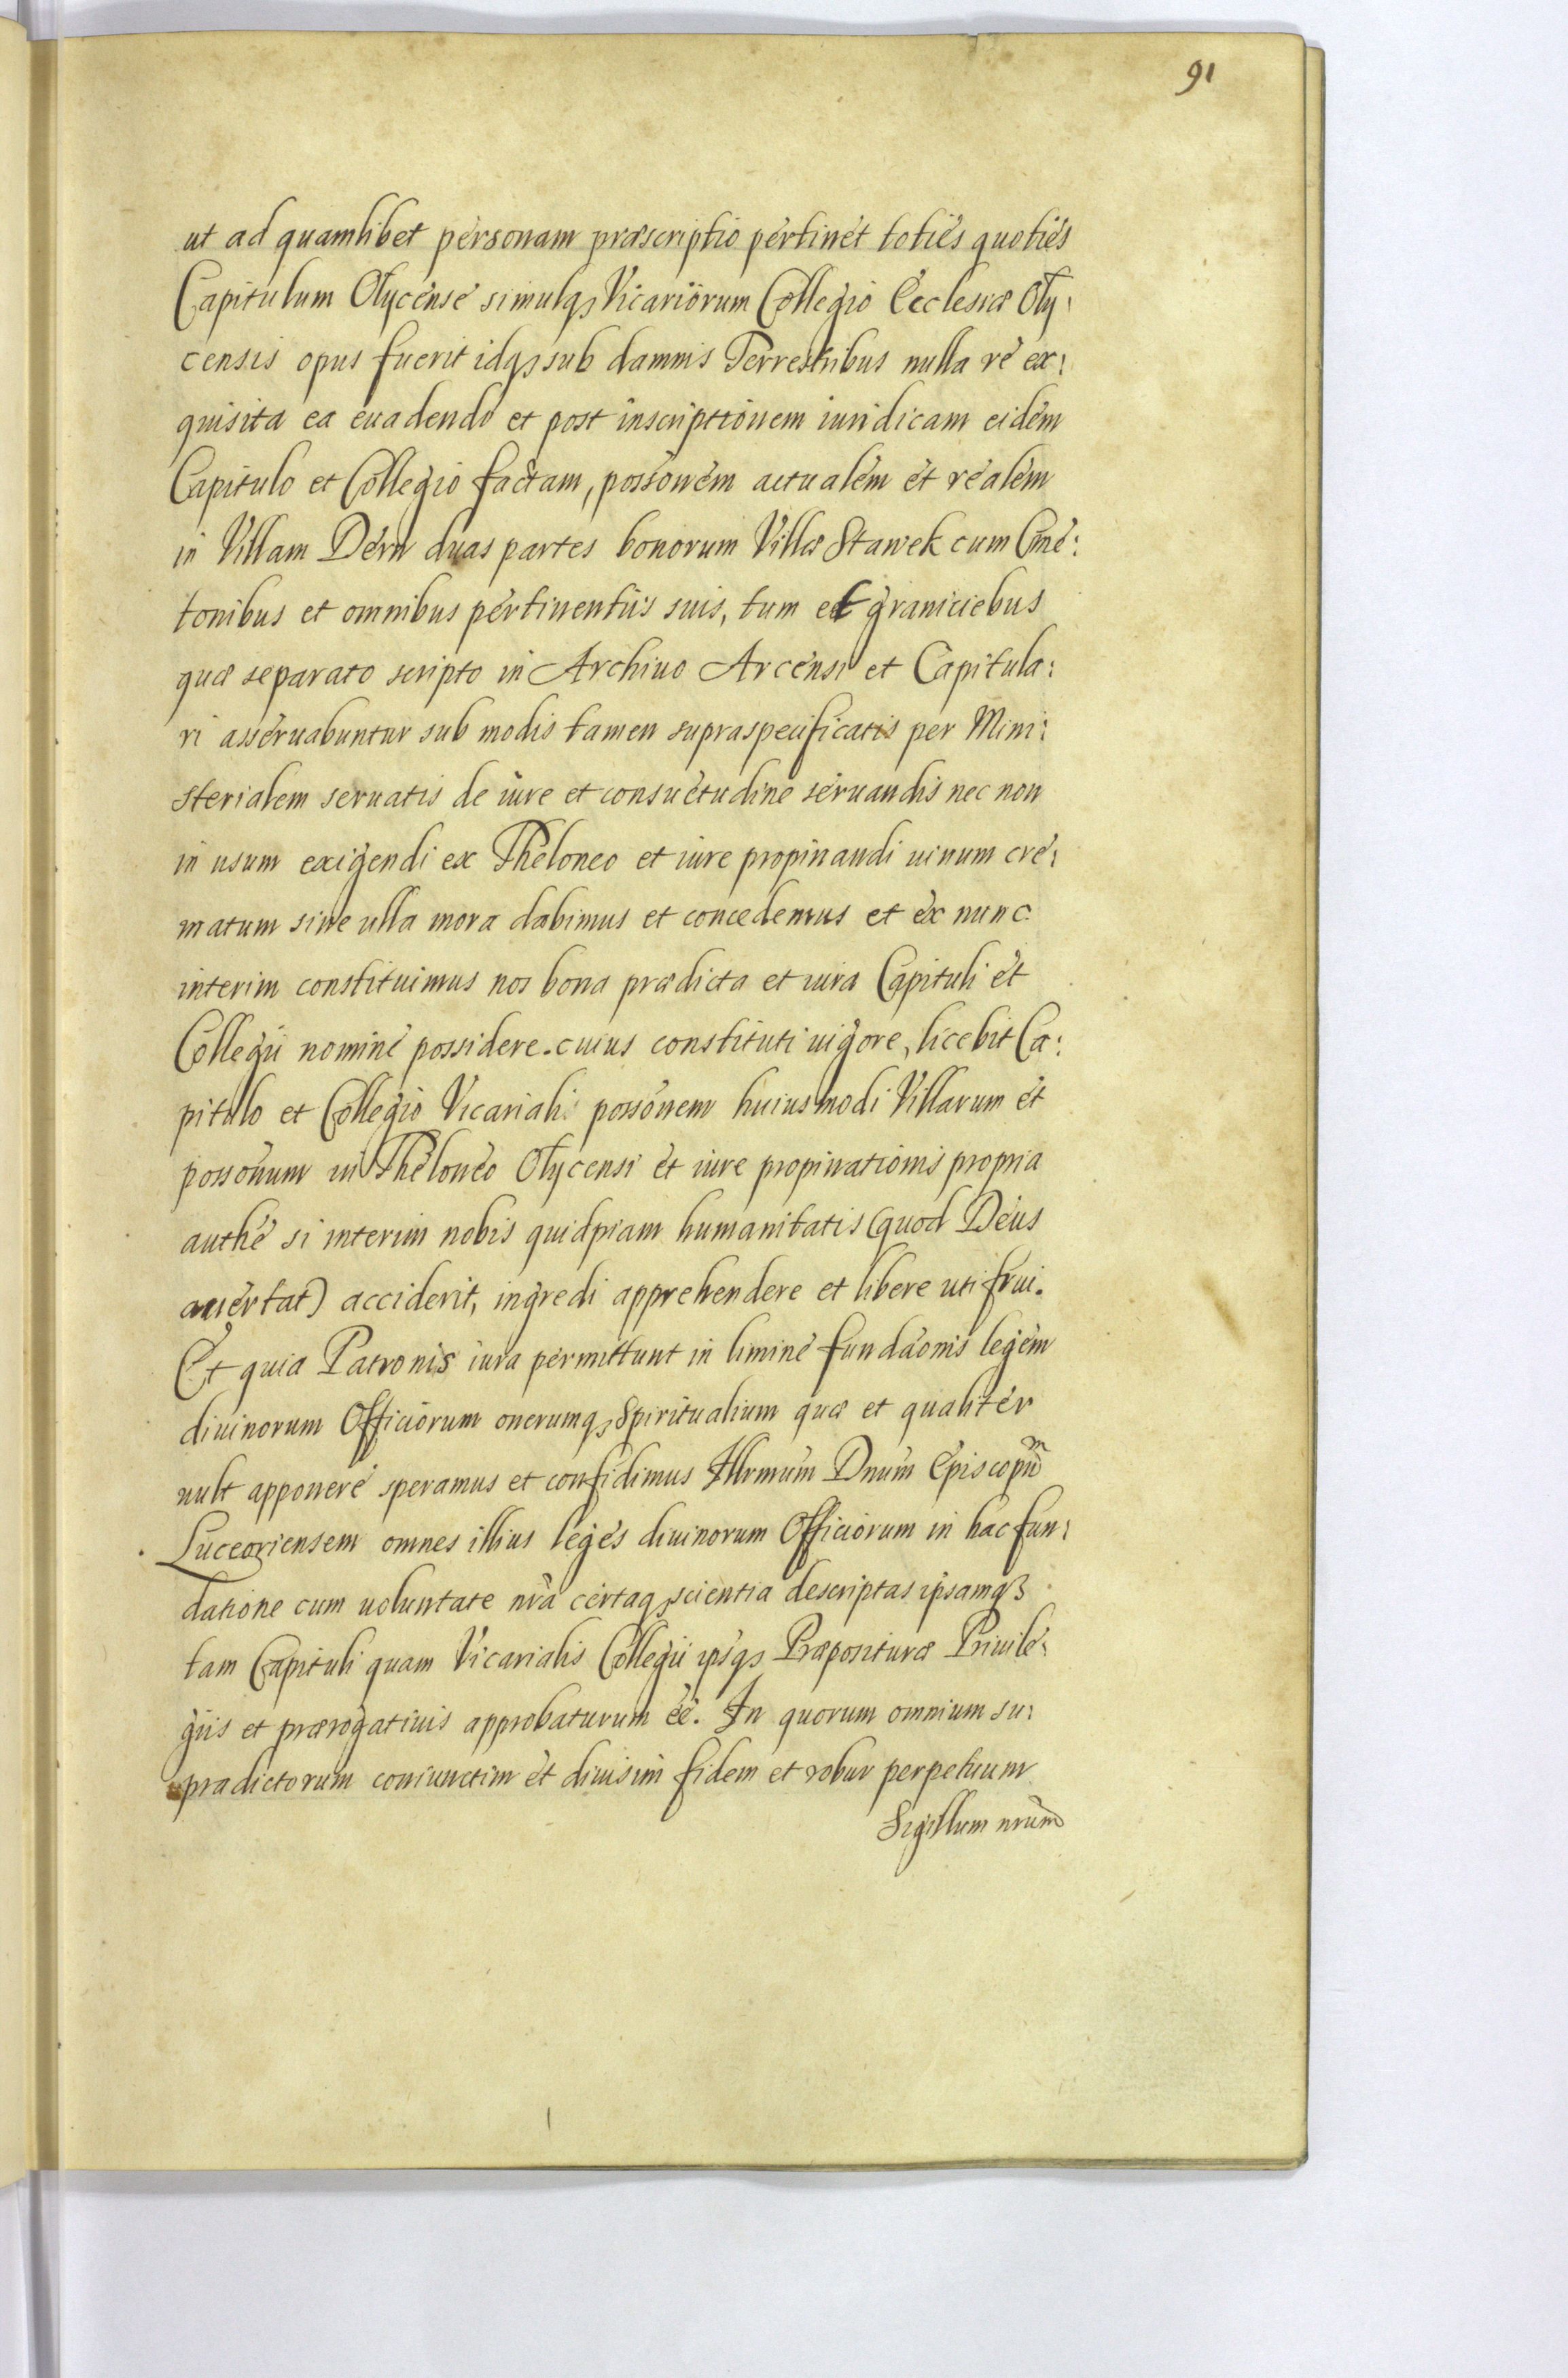 91
ut ad quamlibet personam præscriptio pertinet toties quoties
Capitulum Olycense simulq₃ Vicariorum Collegio Ecclesiæ Oly:
censis opus fuerit idq₃ sub damnis Terrestribus nulla re ex:
quisita ea euadendo et post inscriptionem iuridicam eidem
Capitulo et Collegio factam, possonem actualem et realem
in Villam Dern duas partes bonorum Villæ Stawek cum Cme:
tonibus et omnibus pertinentiis suis, tum et graniciebus
quæ separato scripto in Archiuo Arcensi et Capitula:
ri asseruabuntur sub modis tamen supraspecificatis per Mini:
sterialem seruatis de iure et consuetudine seruandis nec non
in usum exigendi ex Theloneo et iure propinandi uinum cre:
matum sine ulla mora dabimus et concedemus et ex nunc
interim constituimus nos bona prædicta et iura Capituli et
Collegii nomine possidere. cuius constituti uigore, licebit Ca:
pitulo et Collegio Vicariali possonem huiusmodi Villarum et
possonum in Theloneo Olycensi et iure propinationis propria
authe si interim nobis quidpiam humanitatis (quod Deus
auertat) acciderit, ingredi apprehendere et libere uti frui.
Et quia Patronis iura permittunt in limine fundaonis legem
diuinorum Officiorum onerumq₃ Spiritualium quæ et qualiter
uult apponere speramus et confidimus Illrmum Dnum Episcopũm
Luceoriensem omnes illius leges diuinorum Officiorum in hac fun:
datione cum uoluntate nra certaq₃ scientia descriptas ipsamq₃
tam Capituli quam Vicarialis Collegii ipsq₃ Præposituræ Priuile:
giis et prærogatiuis approbaturum ee. In quorum omnium su:
pradictorum coniunctim et diuisim fidem et robur perpetuum
Sigillum nrum